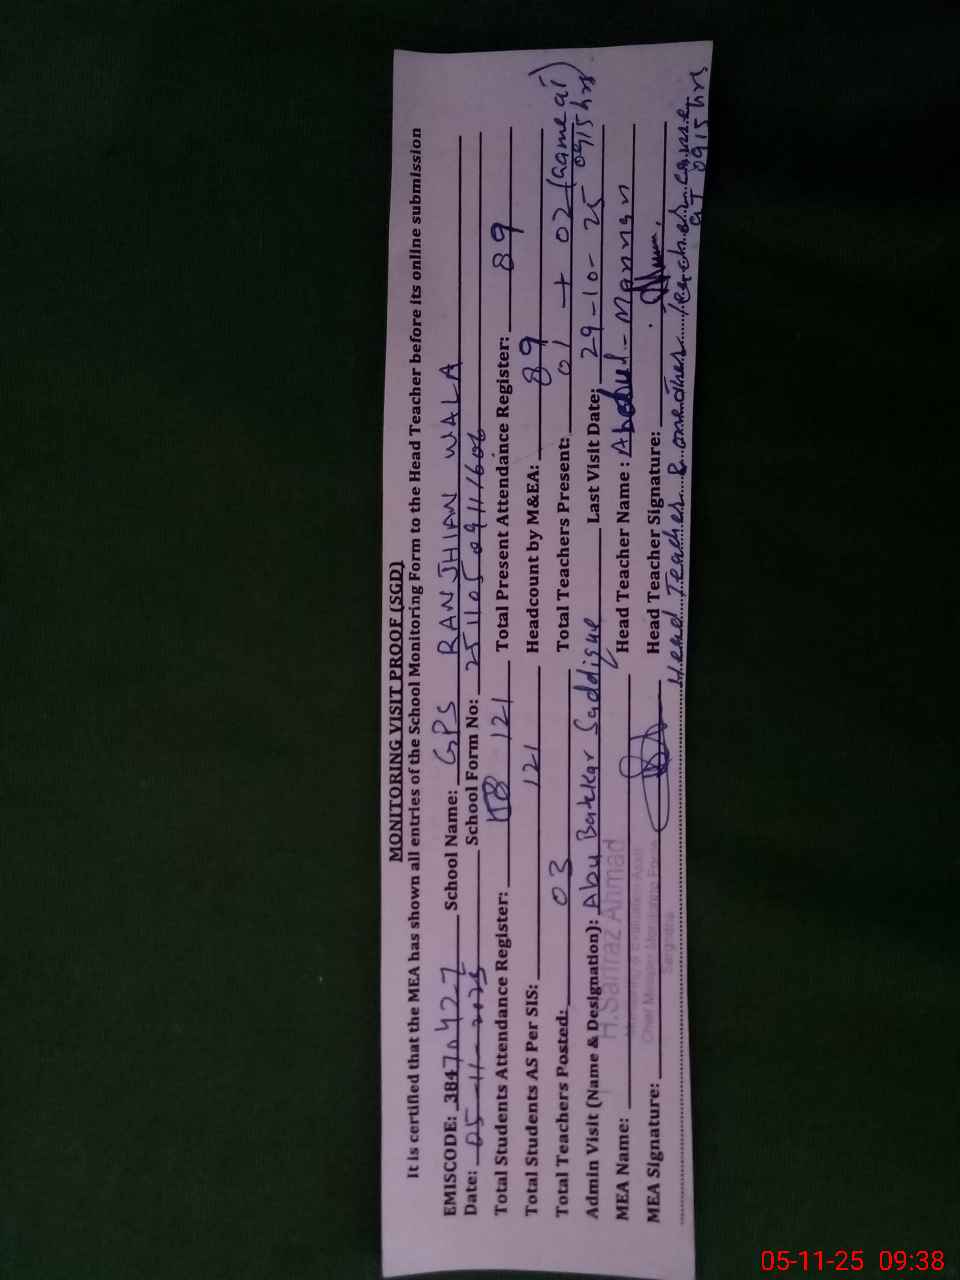 MONITORING VISIT PROOF (SGD)
It is certified that the MEA has shown all entries of the School Monitoring Form to the Head Teacher before its online submission
EMISCODE: 38470427 School Name: GPS RANJHIAN WALA
Date: 05-11-2025 School Form No: 25110509111606
Total Students Attendance Register: 121 Total Present Attendance Register: 89
Total Students AS Per SIS: 121 Headcount by M&EA: 89
Total Teachers Posted: 03 Total Teachers Present: 01 + 02 (came at 0915 hrs)
Admin Visit (Name & Designation): Abu Bakkar Saddique Last Visit Date: 29-10-25
MEA Name: H.Sarfraz Ahmad Head Teacher Name: Abdul-Mannan
Monitoring & Evaluation Assit
Chief Minister Monitoring Force
Sargodha
MEA Signature: Head Teacher Signature:
Head Teacher & one other teacher came at 0915 hrs
05-11-25 09:38